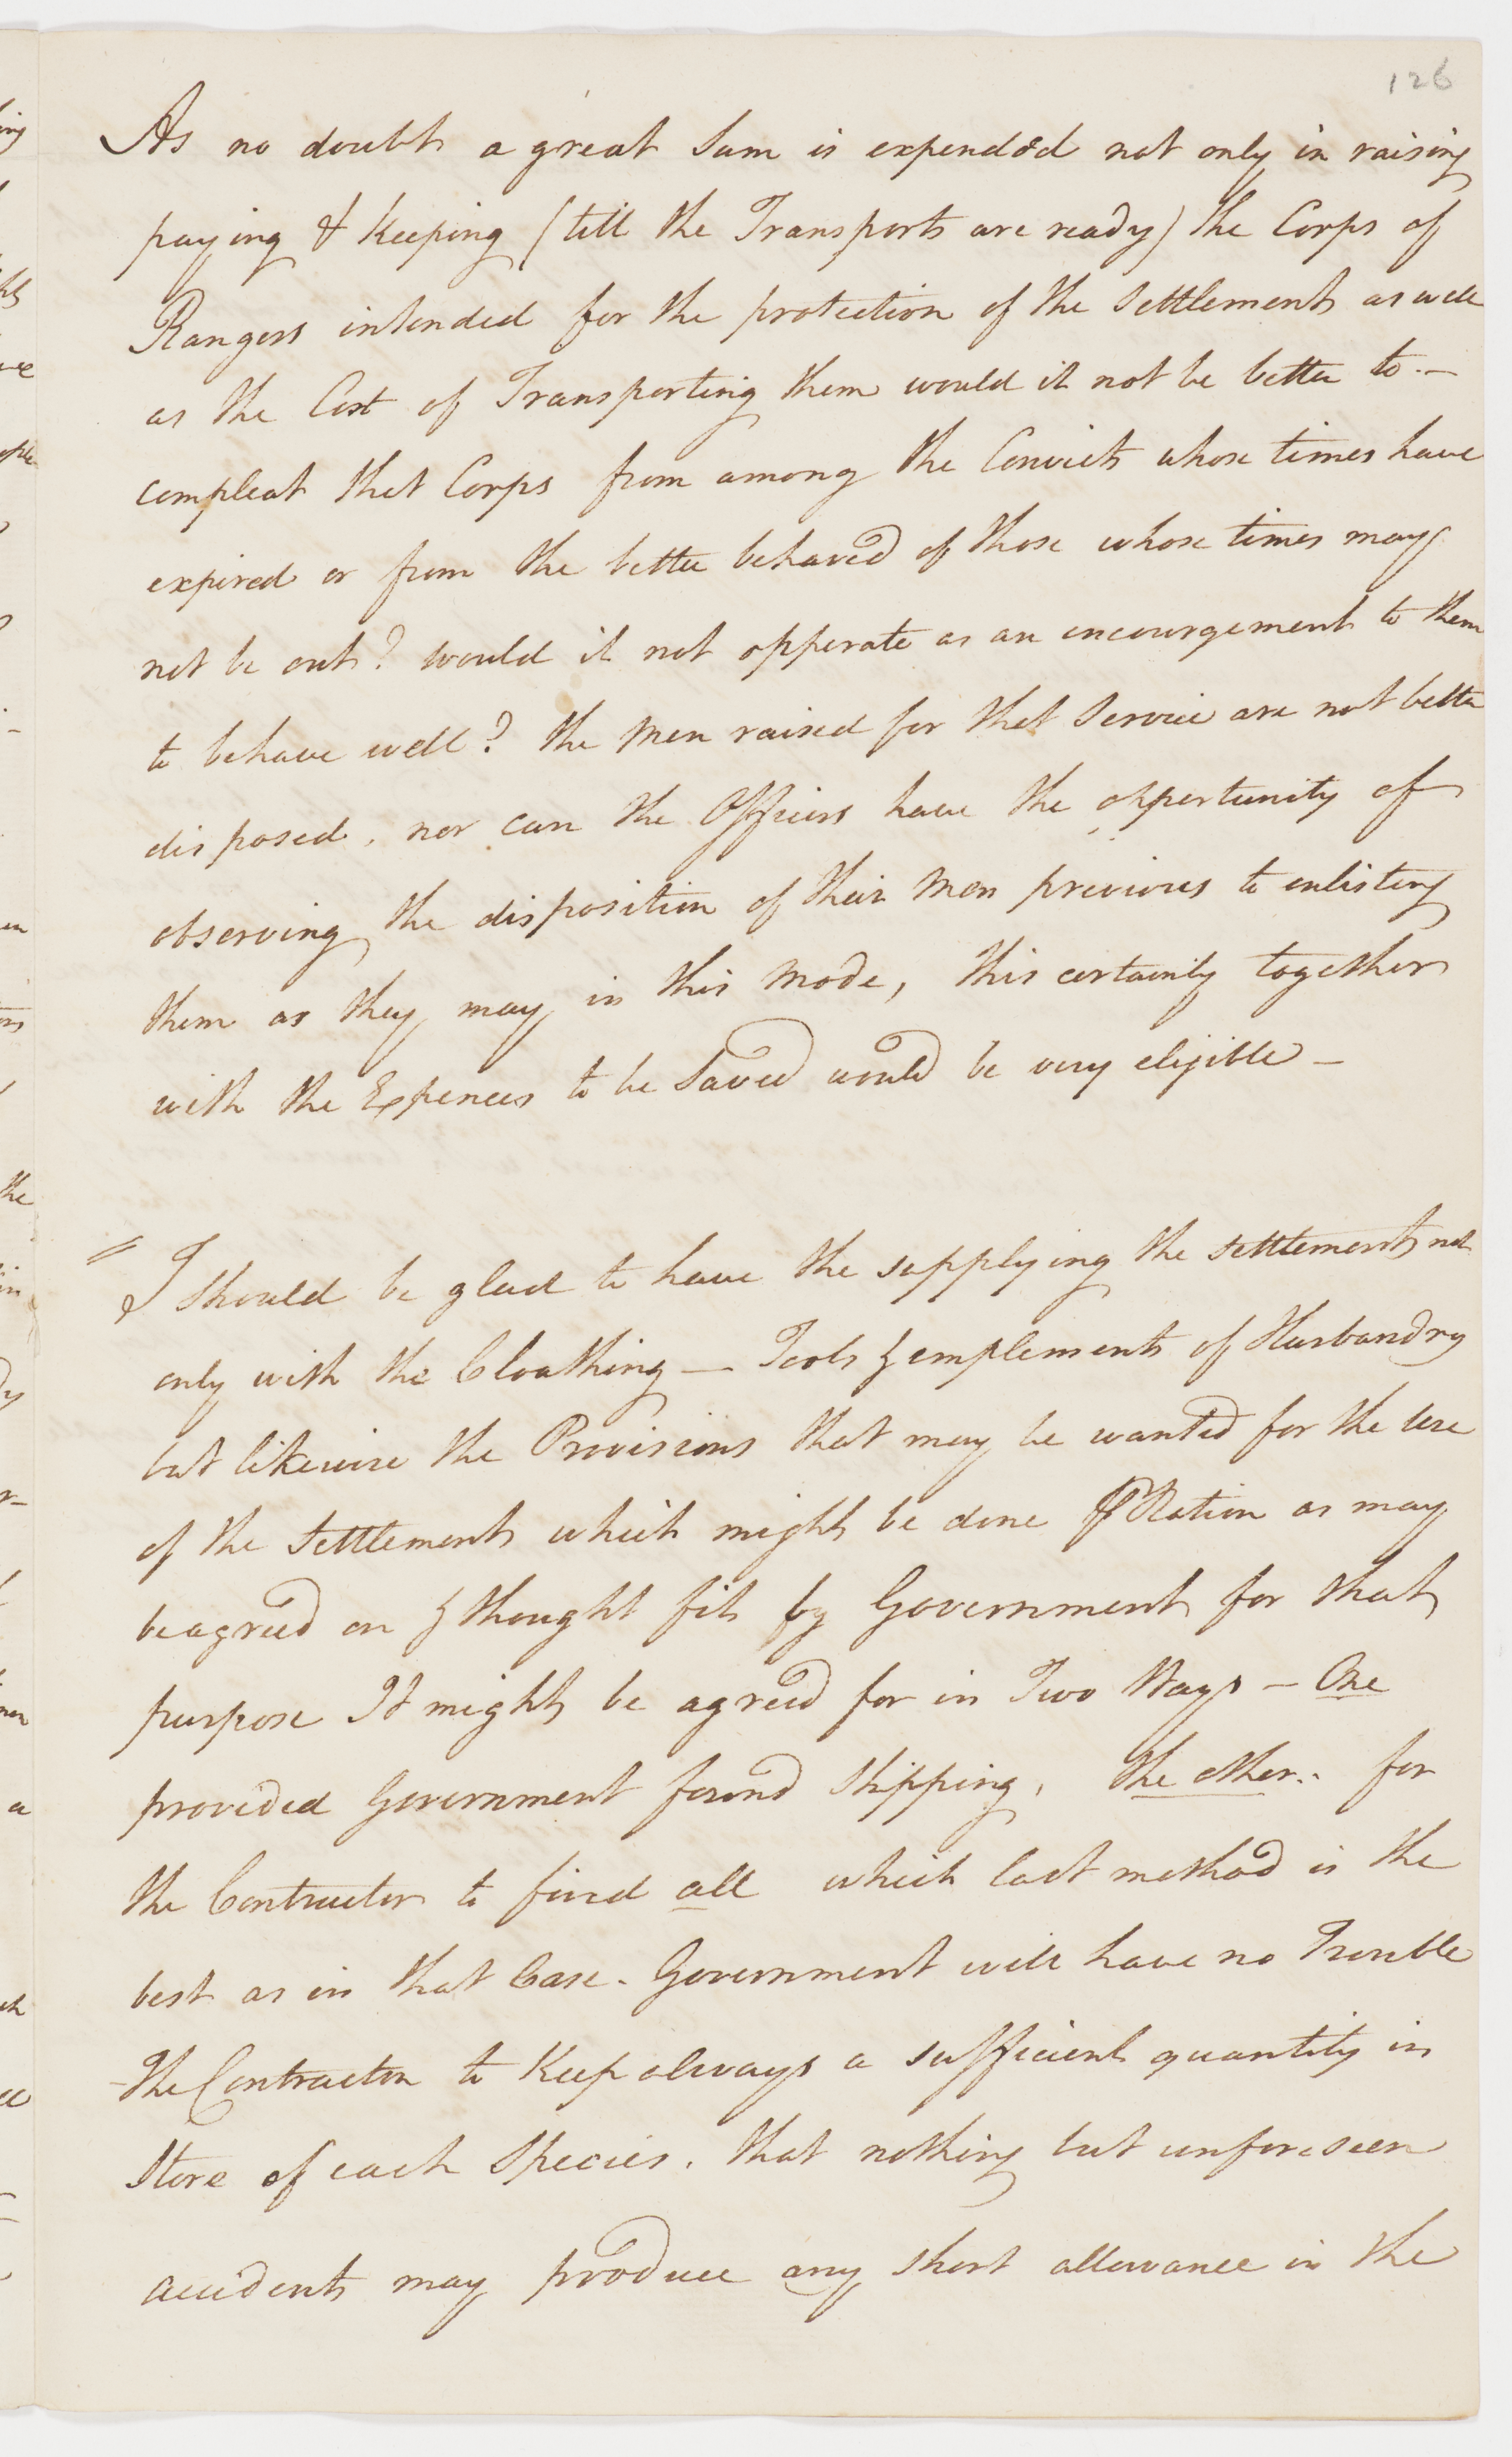 126
As no doubt a great Sum is expended not only in raising
paying & Keeping (till the Transports are ready) the Corps of
Rangers intended for the protection of the Settlement as well
as the Cost of Transporting them would it not be better to -
compleat that Corps from among the Convicts whose times have
expired or from the better behaved of those whose times may
not be out? would it not opperate as an encourgement to them
to behave well? the Men raised for that Service are not better
disposed, nor can the Officers have the oppertunity of
observing the disposition of their Men previous to enlisting
them as they may in this Mode, this certainly together
with the Expences to be Saved would be very eligible -
I Should be glad to have the supplying the Settlement not
only with the Cloathing - Tools & emplements of Husbandry
but likewise the Provisions that may be wanted for the Use
of the Settlement which might be done ⅌ Ration as may
be agreed on & thought fit by Government for that
purpose It might be agreed for in Two Ways - One
provided Government found Shipping, the other.. for
the Contractor to find all which last method is the
best as in that Case. Government will have no Trouble
The Contractor to Keep always a sufficient quantity in
Store of each Species. that nothing but unforeseen
accidents may produce any short allowance in the